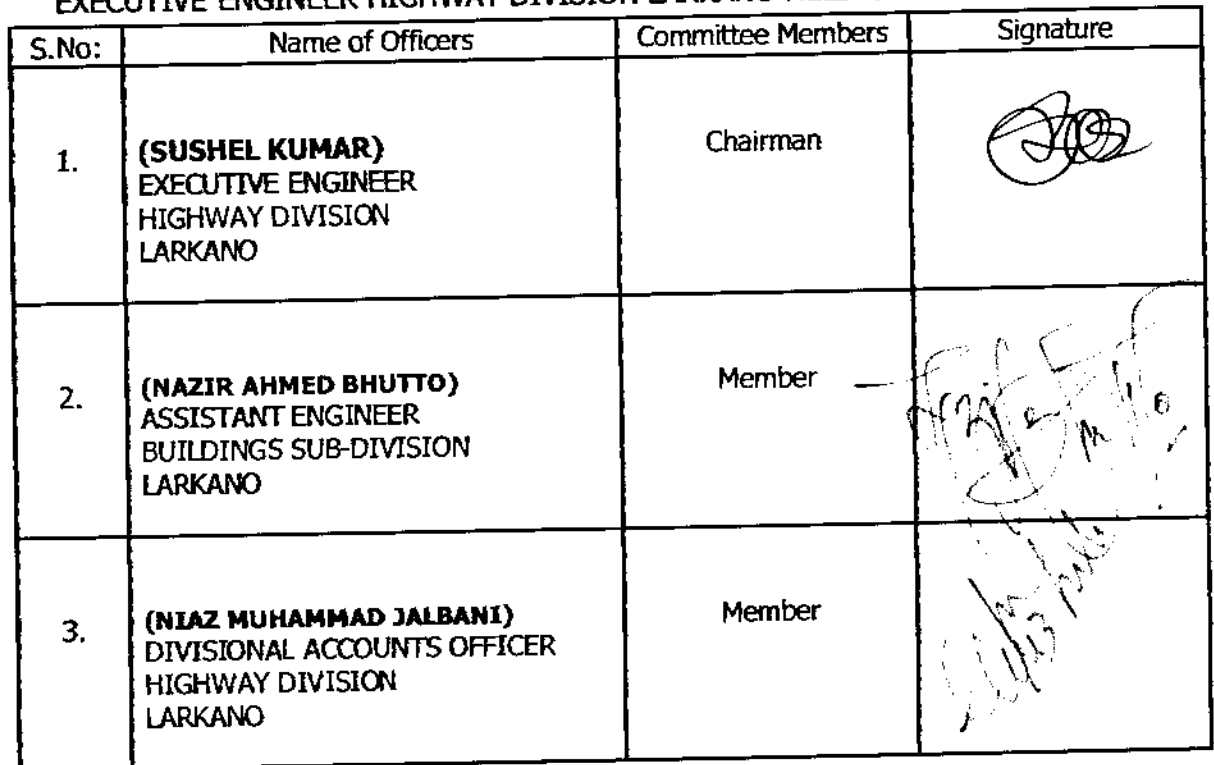 EXECUTIVE ENGINEER HIGHWAY DIVISION LARKANO
S.No: Name of Officers Committee Members Signature
1. (SUSHEL KUMAR) Chairman
EXECUTIVE ENGINEER
HIGHWAY DIVISION
LARKANO
2. (NAZIR AHMED BHUTTO) Member
ASSISTANT ENGINEER
BUILDINGS SUB-DIVISION
LARKANO
3. (NIAZ MUHAMMAD JALBANI) Member
DIVISIONAL ACCOUNTS OFFICER
HIGHWAY DIVISION
LARKANO